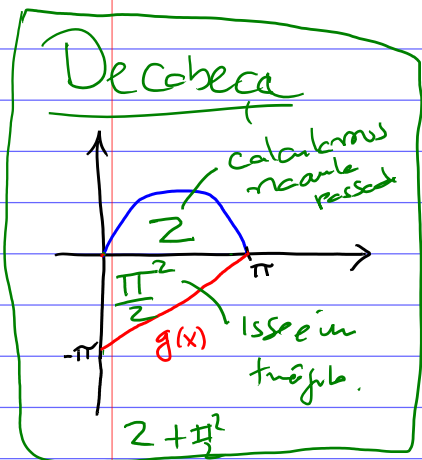 De cabeça
calculamos
na aula
passada
2
π²/2
π
-π
g(x)
Isso é um
triângulo.
2 + π²/2